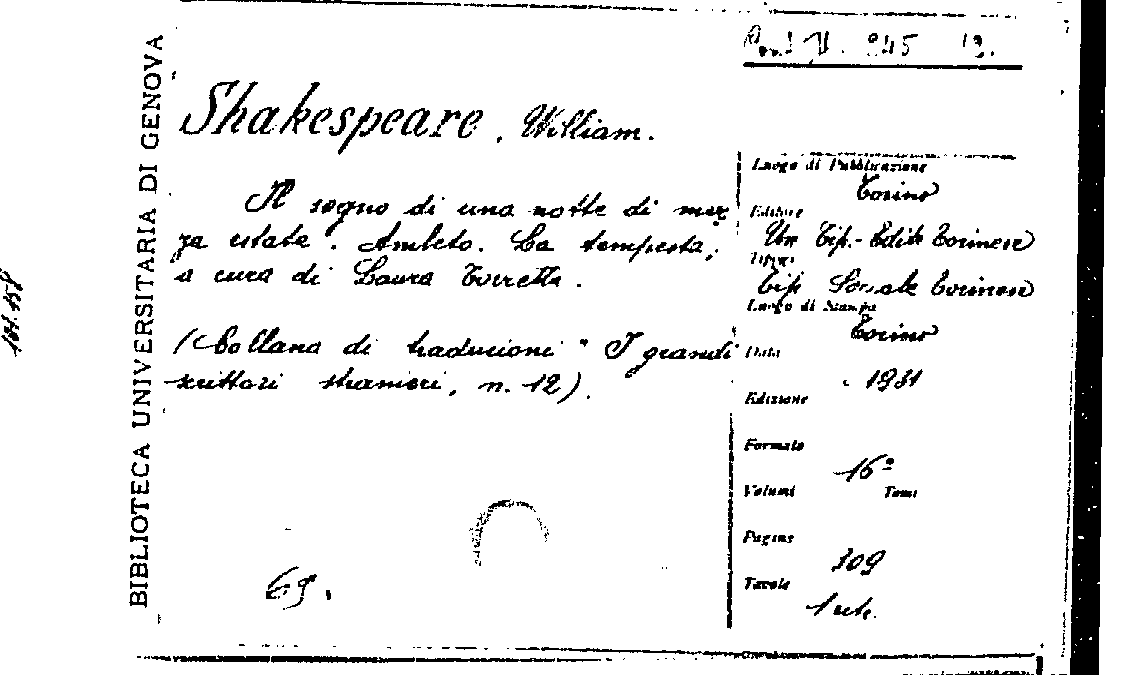 BIBLIOTECA UNIVERSITARIA DI GENOVA
II. 245 12.
Shakespeare, William.
Il sogno di una notte di mez
za estate. Amleto. La tempesta,
a cura di Laura Torretta.
(Collana di traduzioni " I grandi
scrittori stranieri, n. 12).
69.
Luogo di Pubblicazione
Torino
Editore
Un Tip.-Edit. Torinese
Tipogr.
Tip Sociale Torinese
Luogo di Stampa
Torino
Data
1931
Edizione
Formato
16º
Volumi Tomi
Pagine
309
Tavole
1